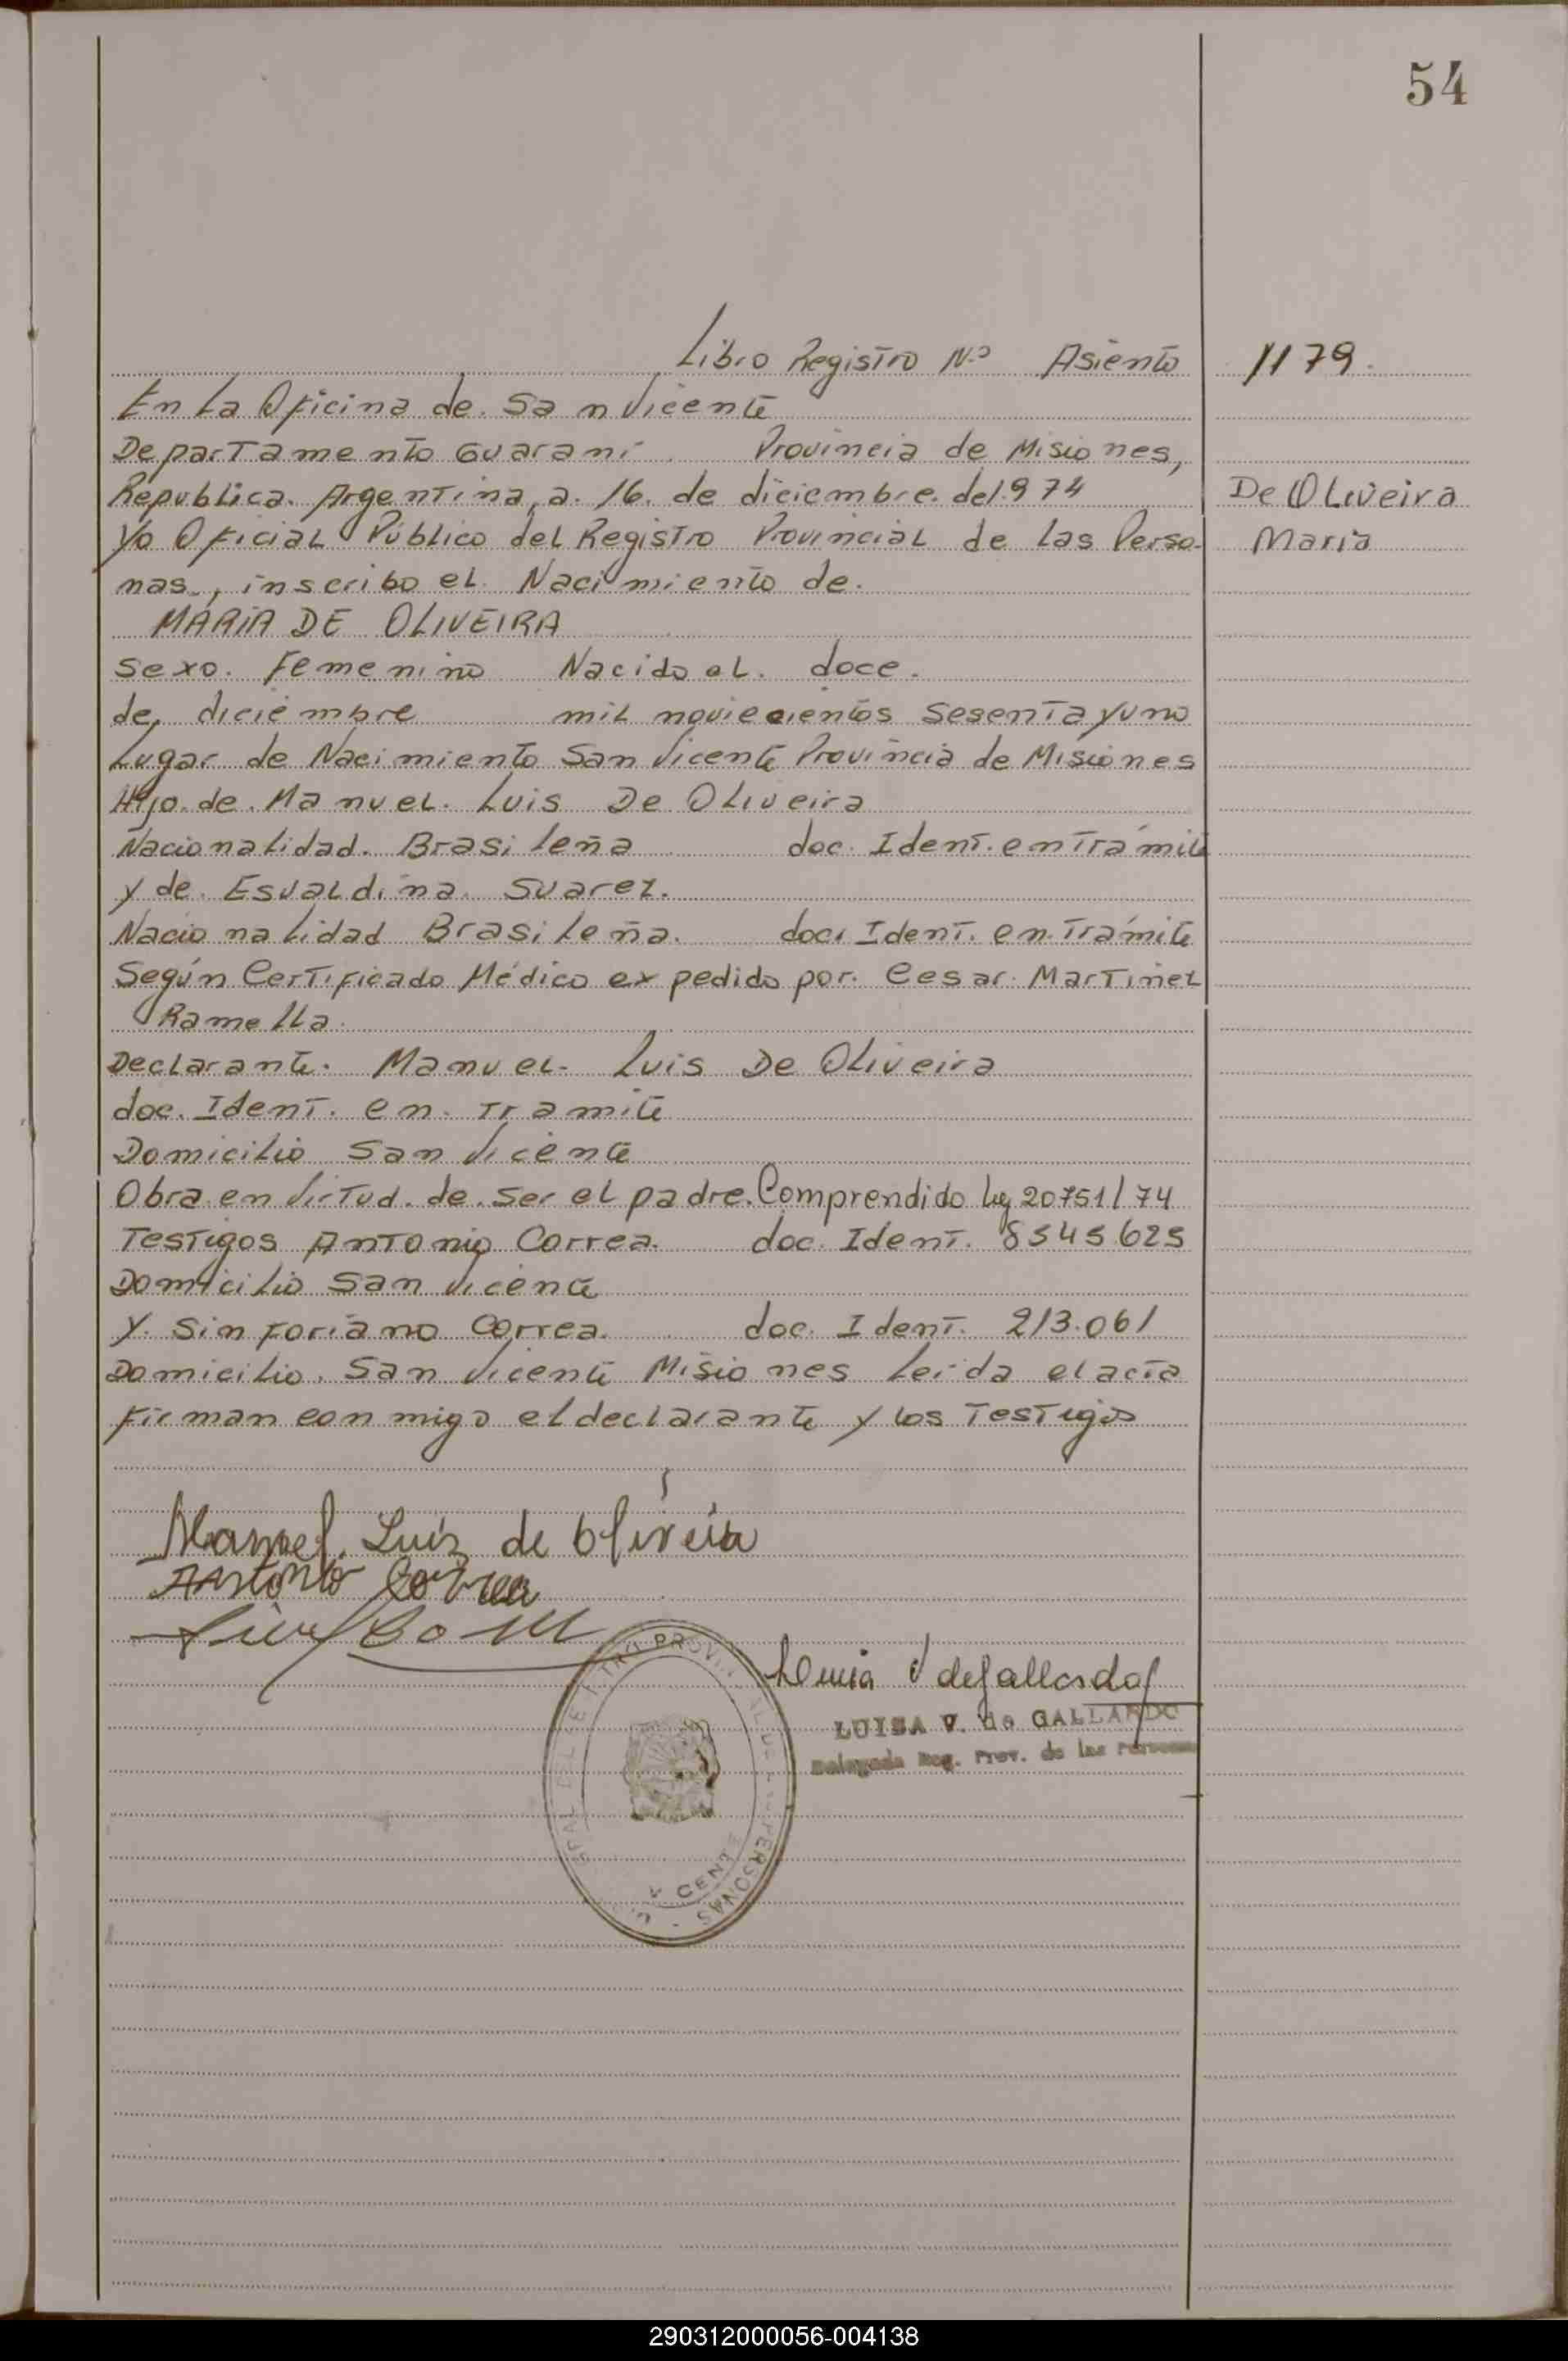 54
Libro Registro Nº Asiento 1179.
En La Oficina de San Vicente
Departamento Guaraní Provincia de Misiones,
Republica Argentina, a 16 de diciembre del 974
De Oliveira
Yo Oficial Público del Registro Provincial de las Perso-
Maria
nas, inscribo el Nacimiento de.
MARIA DE OLIVEIRA
Sexo. Femenino Nacido el. doce.
de, diciembre mil noviecientos sesenta y uno
Lugar de Nacimiento San Vicente Provincia de Misiones
Hijo de. Manuel. Luis De Oliveira
Nacionalidad. Brasileña doc. Ident. en Trámite
y de. Esualdina. Suarez.
Nacionalidad Brasileña. doc. Ident. en Trámite
Según Certificado Médico expedido por. Cesar. Martinez
Ramella.
Declarante. Manuel. Luis De Oliveira
doc. Ident. en. Tramite
Domicilio San Vicente
Obra en Virtud. de. ser el padre. Comprendido ley 20751/74
Testigos Antonio Correa. doc. Ident. 8545625
Domicilio San Vicente
y. Sinforiano Correa. doc. Ident. 213.061
Domicilio. San Vicente Misiones Leída el acta
firman conmigo el declarante y los Testigos
Manoel. Luiz de Oliveira
Antonio Correa
LUISA V. de GALLARDO
Delegada Reg. Prov. de las Personas
PERSONAS
290312000056-004138